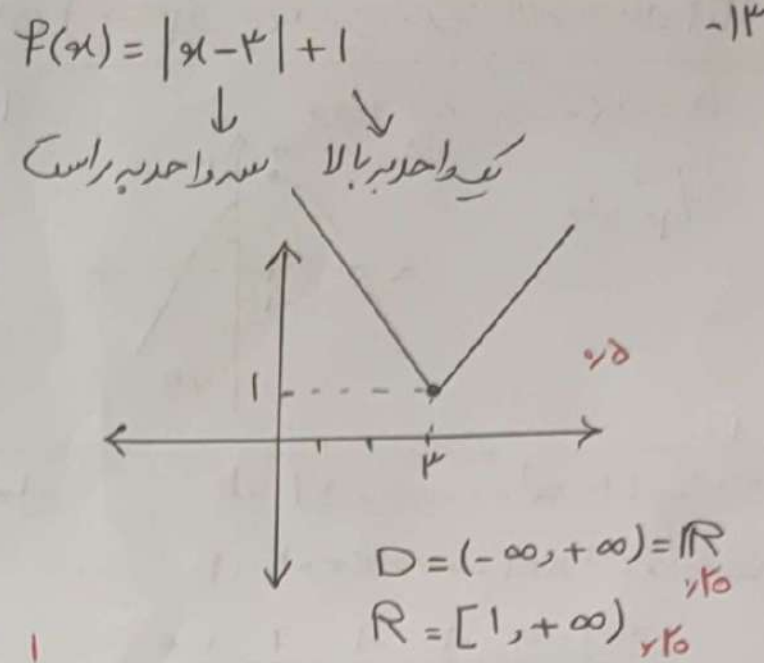 -۱۳
f(x) = |x-۳| + ۱
سه واحد به راست یک واحد به بالا
۰٫۵
۱
۳
D = (-∞, +∞) = ℝ
٫۲۵
R = [۱, +∞)
٫۲۵
۱